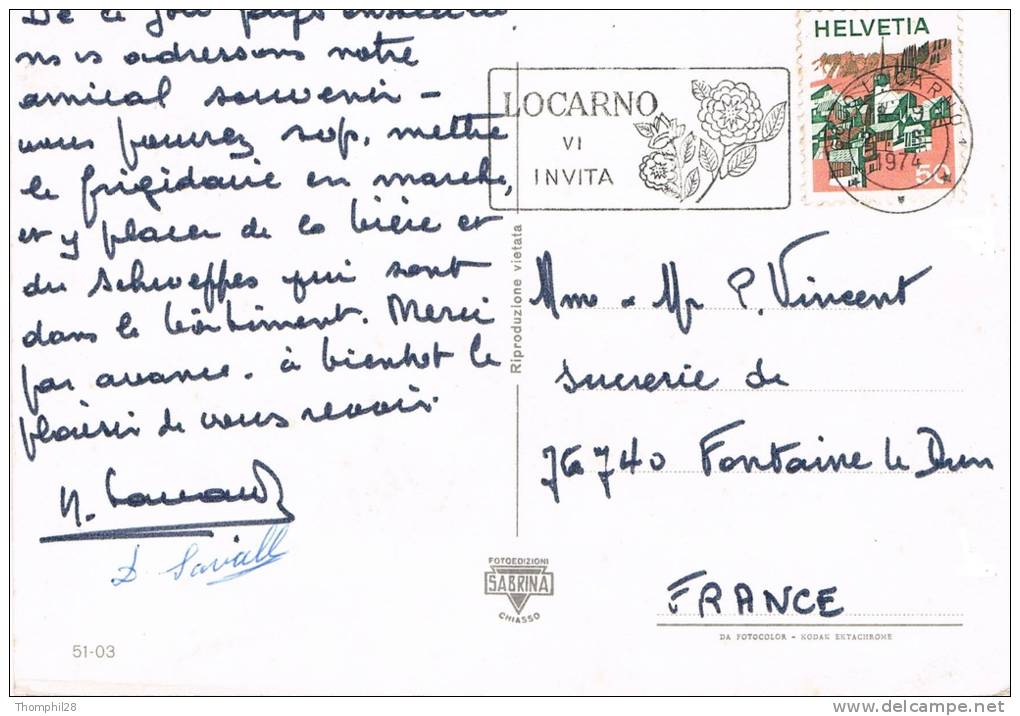 De ce joli pays ensoleillé
nous adressons notre
amical souvenir -
vous pouvez svp. mettre
le frigidaire en marche,
et y placer de la bière et
du schweppes qui sont
dans le bâtiment. Merci
par avance. à bientot le
plaisir de vous revoir.
51-03
Thomphi28
LOCARNO
VI
INVITA
HELVETIA
50
LOCARNO
1974
Riproduzione vietata
FOTOEDIZIONI
SABRINA
CHIASSO
Mme - Mr P. Vincent
Sucrerie de
76740 Fontaine le Dun
FRANCE
DA FOTOCOLOR - KODAK EKTACHROME